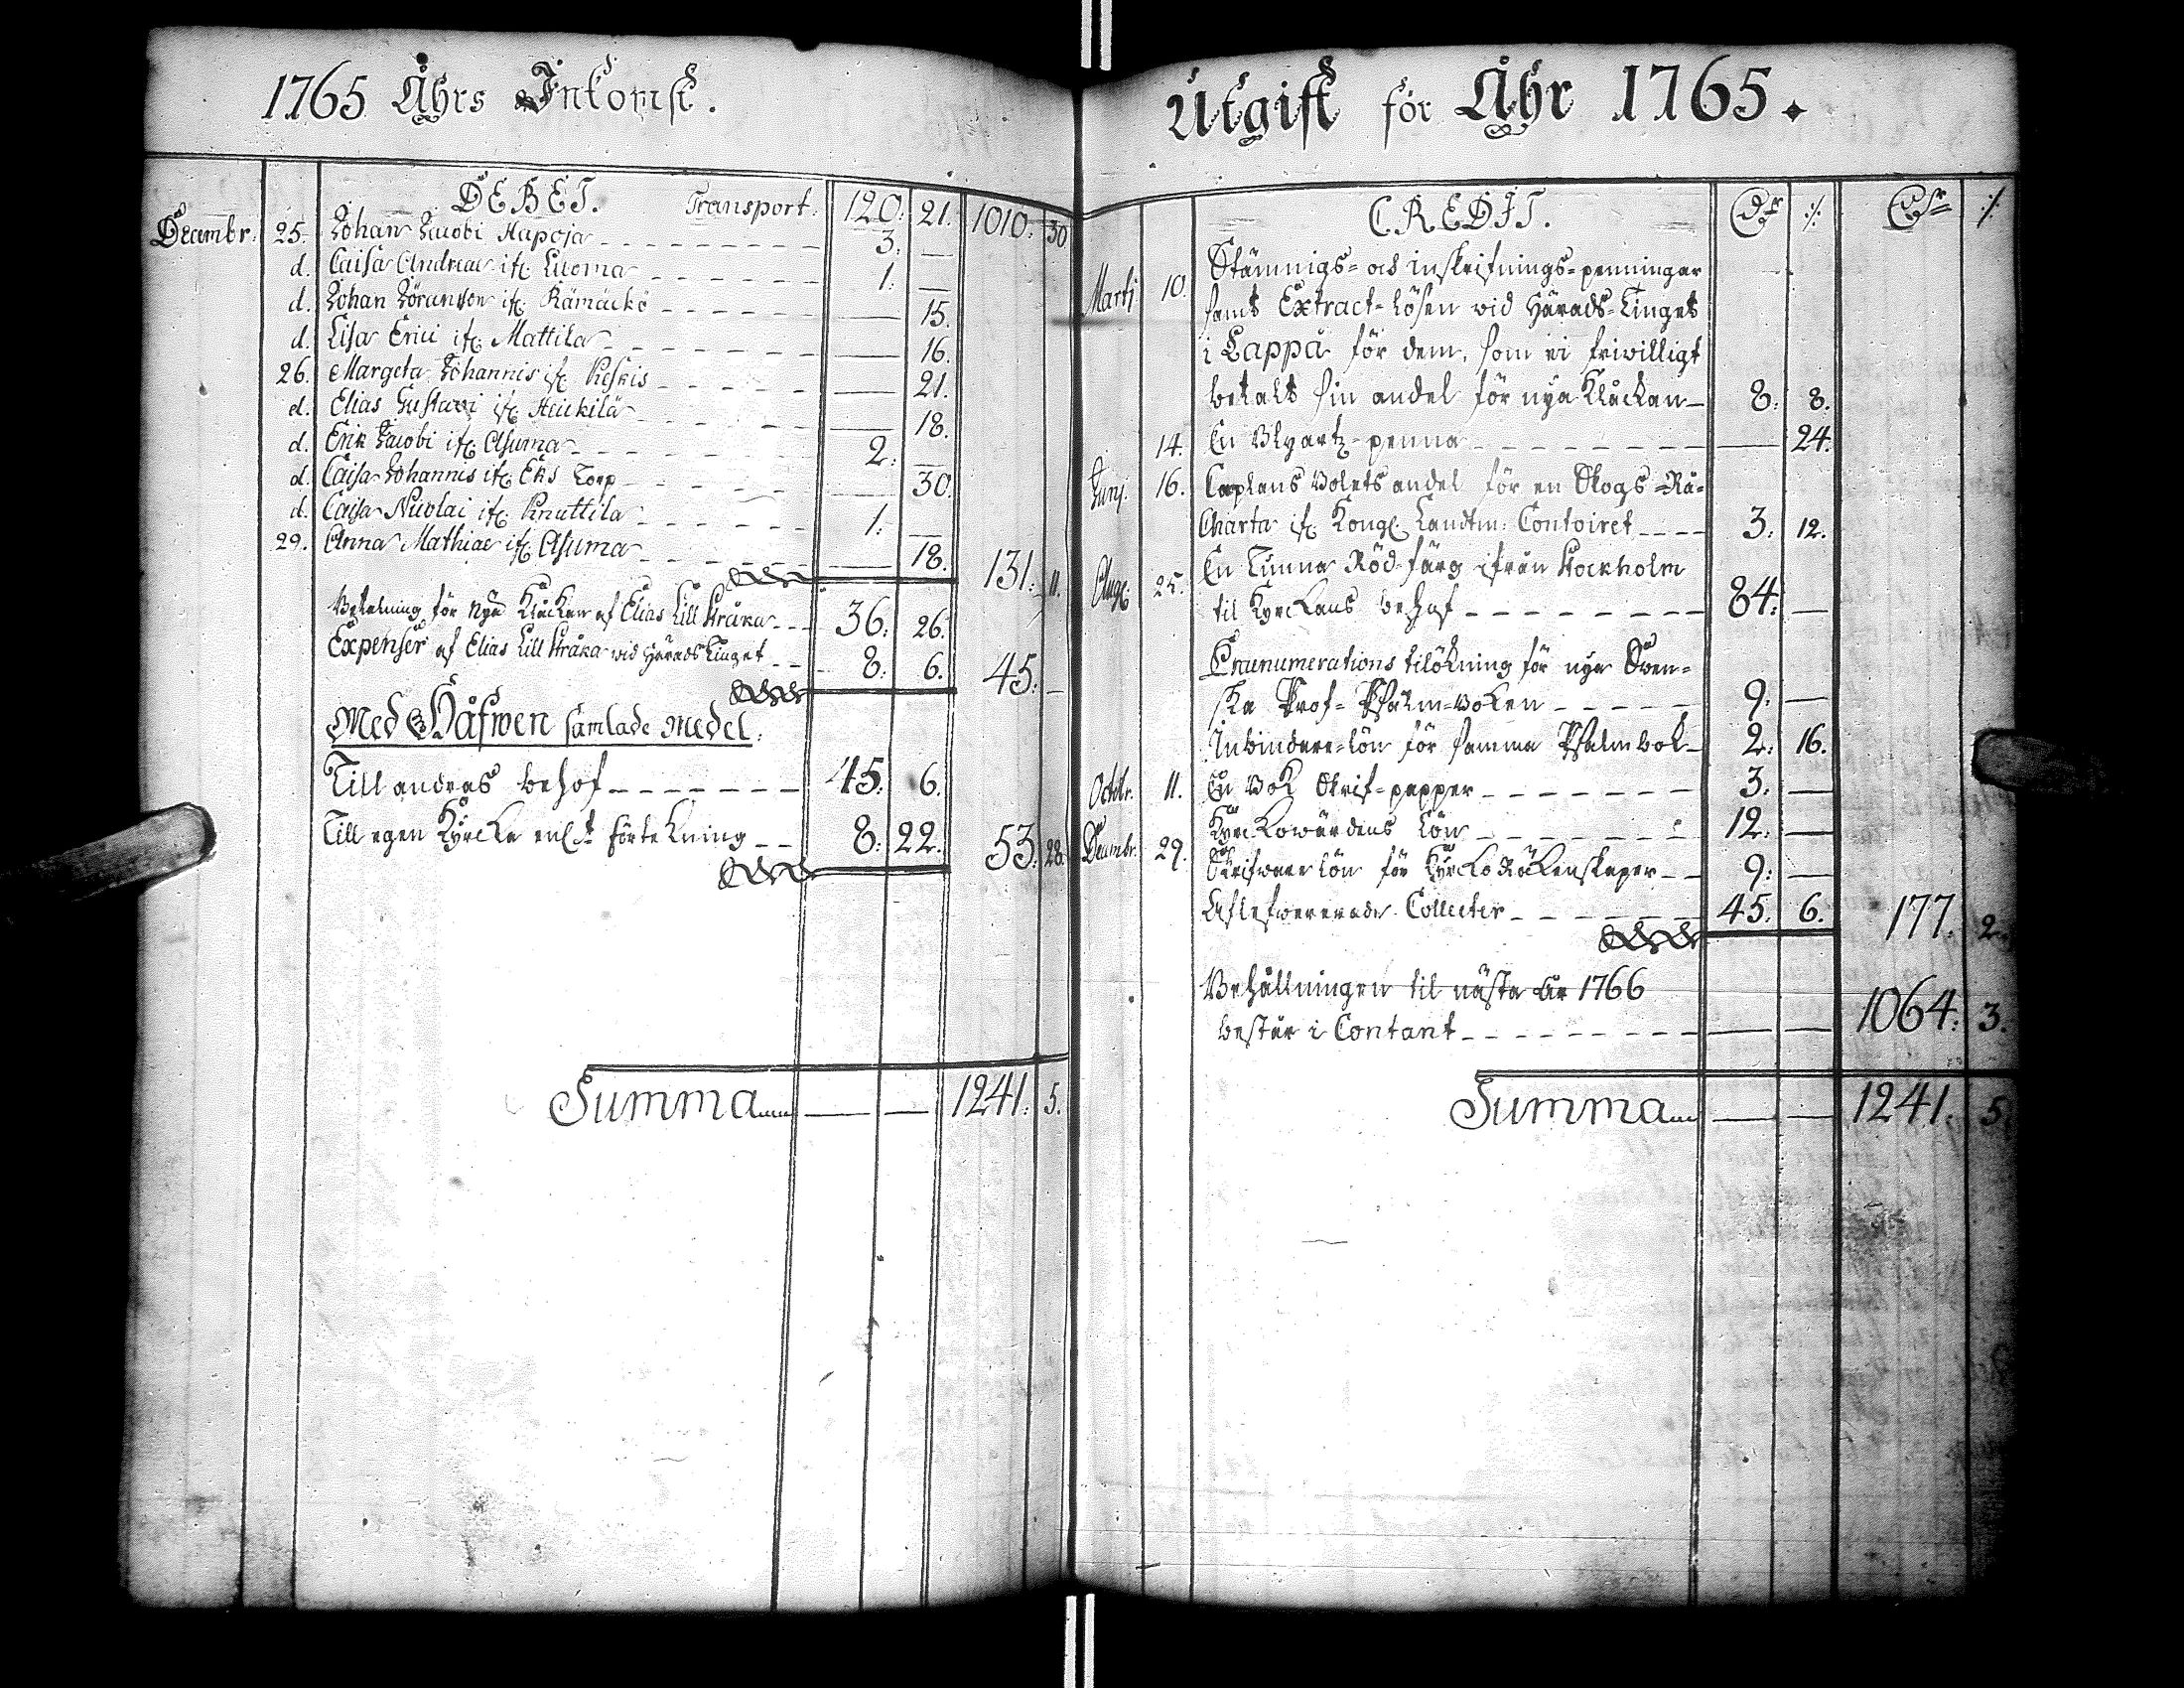 1765 Åhrs Inkomst.
DEBET. Transport: 120: 21. 1010: 30
Decembr: 25. Johan Jacobi Hapoja 3: —
d. Caisa Andreae ifr. Luoma 1: —
d. Johan Göransson ifr. Rämäckö — 15.
d. Lisa Erici ifr. Mattila — 16.
26. Margeta Johannis ifr. Keskis — 21.
d. Elias Gustavi ifr. Heickilä — 18.
d. Erik Jacobi ifr. Asuma 2: —
d. Caisa Johannis ifr. Eks Torp — 30.
d. Caisa Nicolai ifr. Knuttila 1: —
29. Anna Mathiae ifr. Asuma — 18. 131: 11.
Betalning för nya Klåckan af Elias Lill Kråka 36: 26.
Expenser af Elias Lill Kråka vid Härads Tinget 8: 6. 45: —
Med Håfwen samlade medel:
Till andras behof 45: 6.
Till egen Kyrcka enl:t förtekning 8: 22. 53: 28.
Summa — — 1241: 5.
Utgift för Åhr 1765.
CREDIT. Dr ./. Dr ./.
Martj 10. Stämnigs- och inskrifnings-penningar
samt Extract-lösen vid Härads-Tinget
i Lappå för dem, som ei friwilligt
betalt sin andel för nya Klåckan 8: 8.
14. En Blyartz-penna — 24.
Junj. 16. Caplans Bolets andel för en Skogs-Rå-
Charta ifr. Kongl. Landtm: Contoiret 3: 12.
Aug. 25. En Tunna Röd-färg ifrån Stockholm
til Kyrckans behof 84: —
Praenumerations tilökning för nya Swen-
ska Prof-Psalm-boken 9: —
Inbindare-lön för samma Psalmbok 2: 16.
Octobr. 11. En Bok Skrif-papper 3: —
Kyrckowärdens lön 12: —
Decembr. 29. Skrifware lön för Kyrcko Räkenskaper 9: —
Aflefwererade Collecter 45: 6. 177: 2.
Behållningen til nästa år 1766
består i Contant — — 1064: 3.
Summa — — 1241: 5